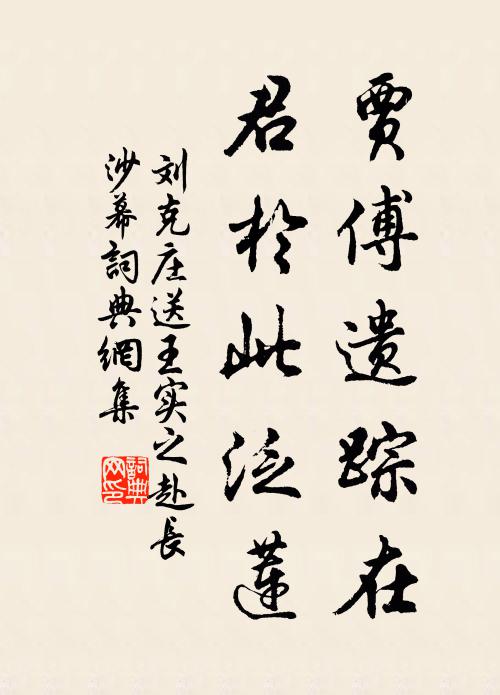 贾傅遗踪在
君於此泛莲
刘克庄送王实之赴长
沙幕詞典網集
詞典
网印